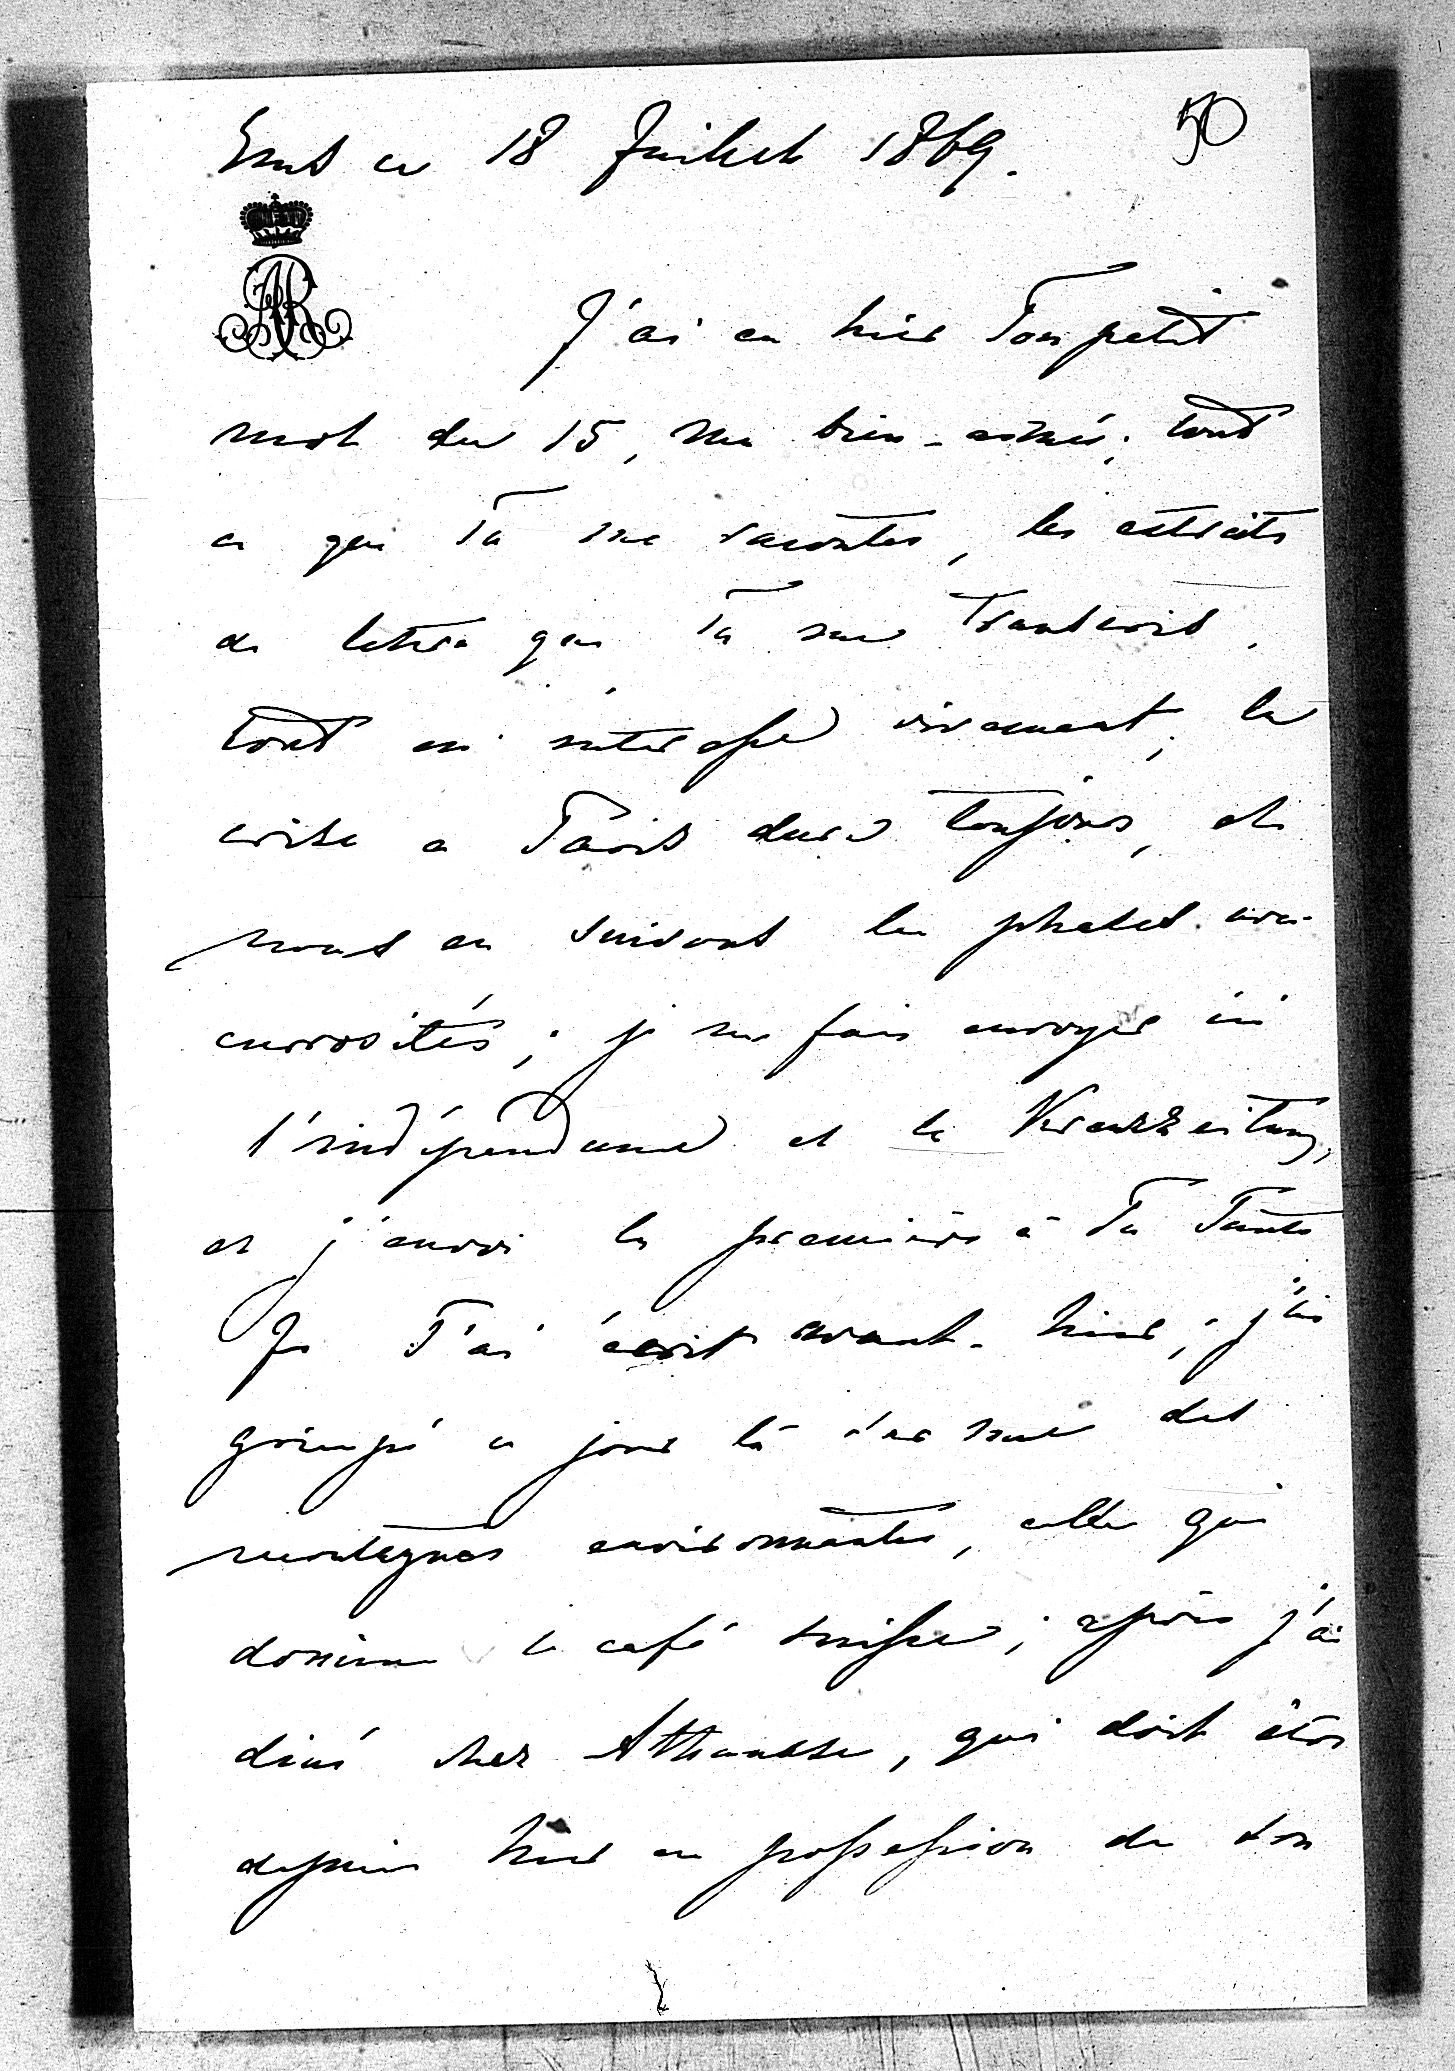 50
Ems ce 18 Juillet 1869.
J'ai eu hier Ton petit
mot du 15, ma bien-aimée; tout
ce que Tu me racontes, les extraits
de lettres que Tu me transcris,
tout m'intéresse vivement; la
crise à Paris dure toujours, et
nous en suivons les phases avec
curiosité; je me fais envoyer ici
l'indépendance et la Kreuzzeitung,
et j'envoie la première à Ta Tante
Je T'ai écrit avant-hier; j'ai
grimpé ce jour là une des
montagnes environnantes, celle qui
domine le café suisse; après j'ai
diné chez Athanase, qui doit être
depuis hier en possession de son